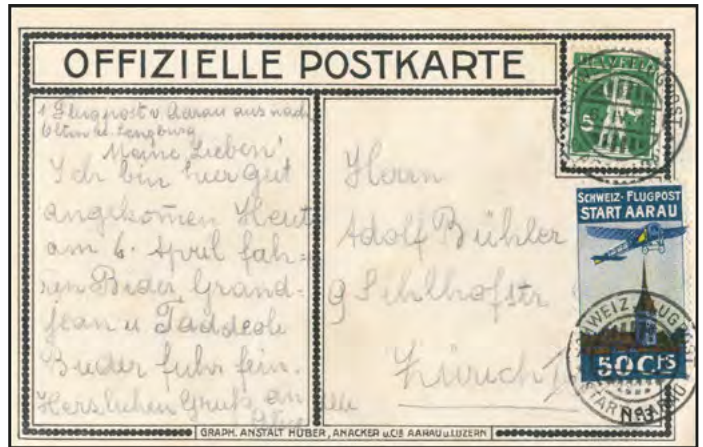 OFFIZIELLE POSTKARTE
1 Flugpost v Aarau aus nach
Olten u. Lengburg
Meine Lieben!
Ich bin hier gut
angekomen Heut
am 6. April fah-
ren Bider Grand-
jean u Taddeoli
Bieder fuhr fein.
Herslichen Gruß an
alle
Herrn
Adolf Bühler
9 Sihlhofstr
Zürich 1
5
SCHWEIZ- FLUGPOST
START AARAU
50 Cts
SCHWEIZ. FLUGPOST
GRAPH. ANSTALT HUBER, ANACKER u. CIE AARAU u. LUZERN